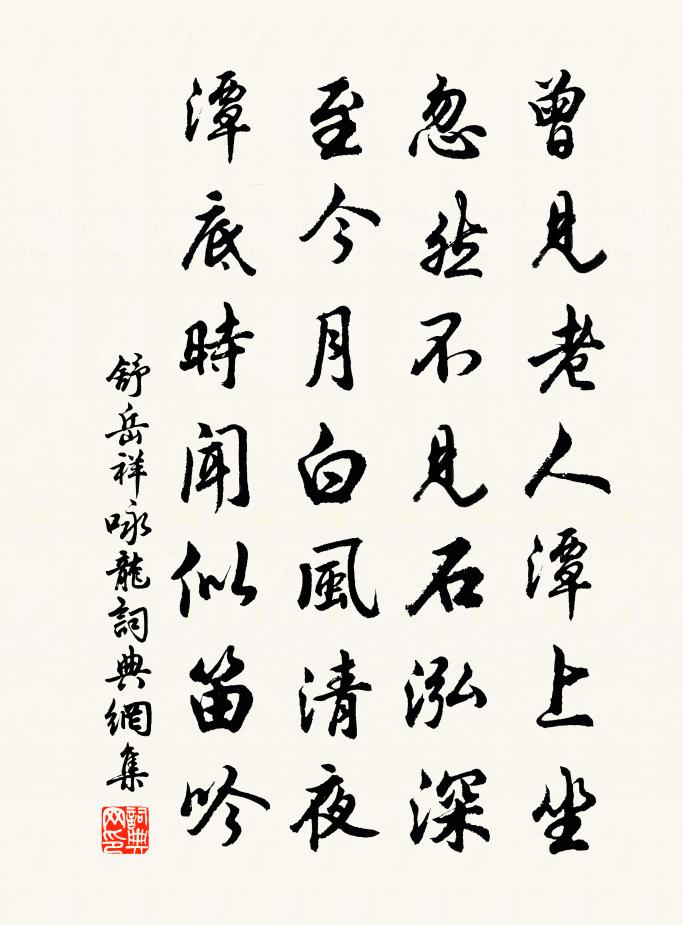 曾見老人潭上坐
忽然不見石泓深
至今月白風清夜
潭底時聞似笛吟
舒岳祥咏龍詞典網集
詞典网印